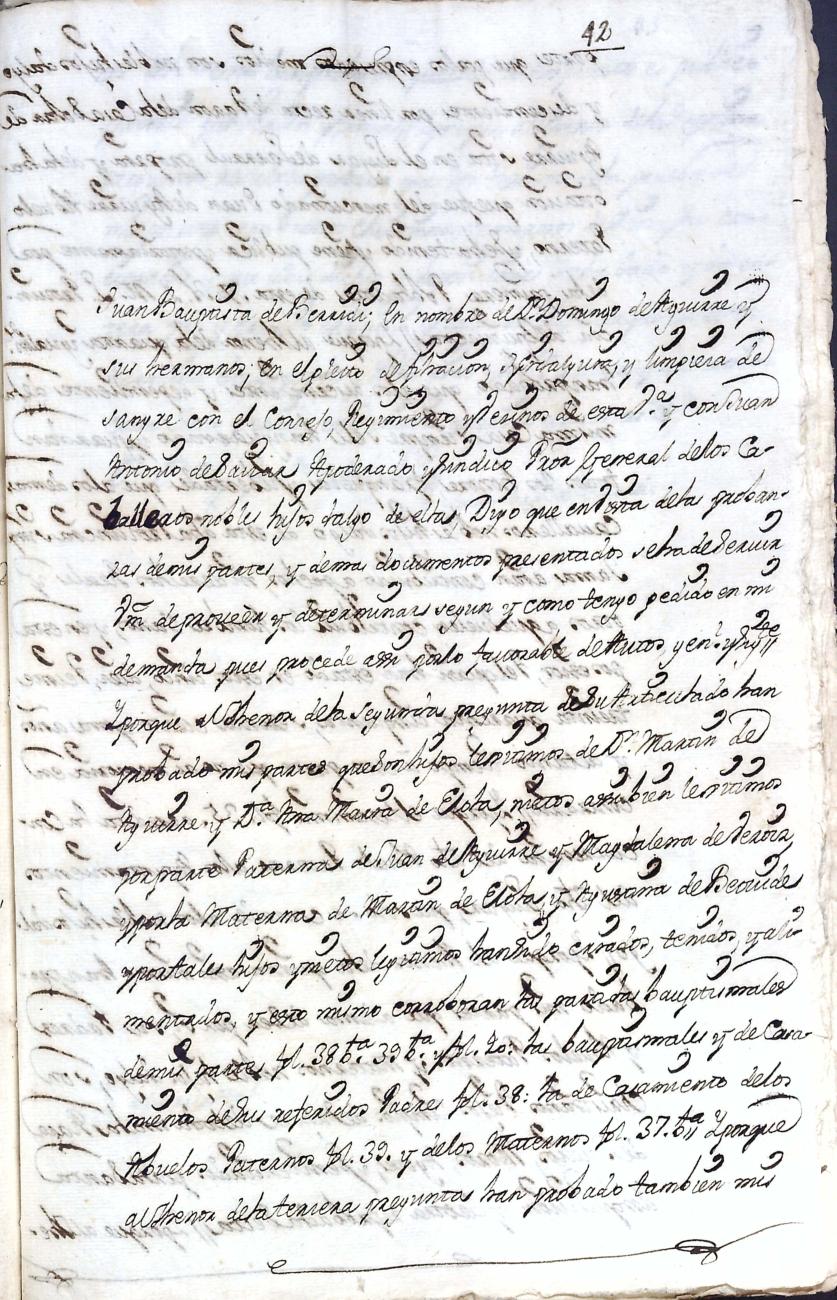 42
Juan Bauptista de Berridi; En nombre de Dⁿ Domingo de Aguirre y
sus hermanos, en el pleito de filiacion, Hidalguia, y limpieza de
sangre con el Conzejo, Regimiento y Vecinos de esta Vª y con Juan
Antonio de Apoderado y Sindico Pror General de los Ca-
balleros nobles hijos dalgo de ella; Digo que en Vista de las proban-
zas de mis partes, y demas documentos presentados se ha de servir
Vm de proveer y determinar segun y como tengo pedido en mi
demanda pues procede assi por lo favorable de Autos y
Y porque al thenor de la segunda pregunta de su Articulado han
probado mis partes que son hijos lexitimos de Dⁿ Martin de
Aguirre y Dª Ana Maria de Elola, nietos assi bien lexitimos
por parte Paterna de Juan de Aguirre y Magdalena de
y por la Materna de Martin de Elola y Agustina de Beovide
y por tales hijos y nietos legitimos han sido criados, tenidos, y ali-
mentados, y esto mismo corroboran las partidas bauptismales
de mis partes fol. 38 bta 39 bta y fol. 20: las bauptismales y de Casa-
miento de sus referidos Padres fol. 38: la de Casamiento de los
Abuelos Paternos fol. 39. y de los Maternos fol. 37. bta Y porque
al thenor de la tercera pregunta han probado tambien mis